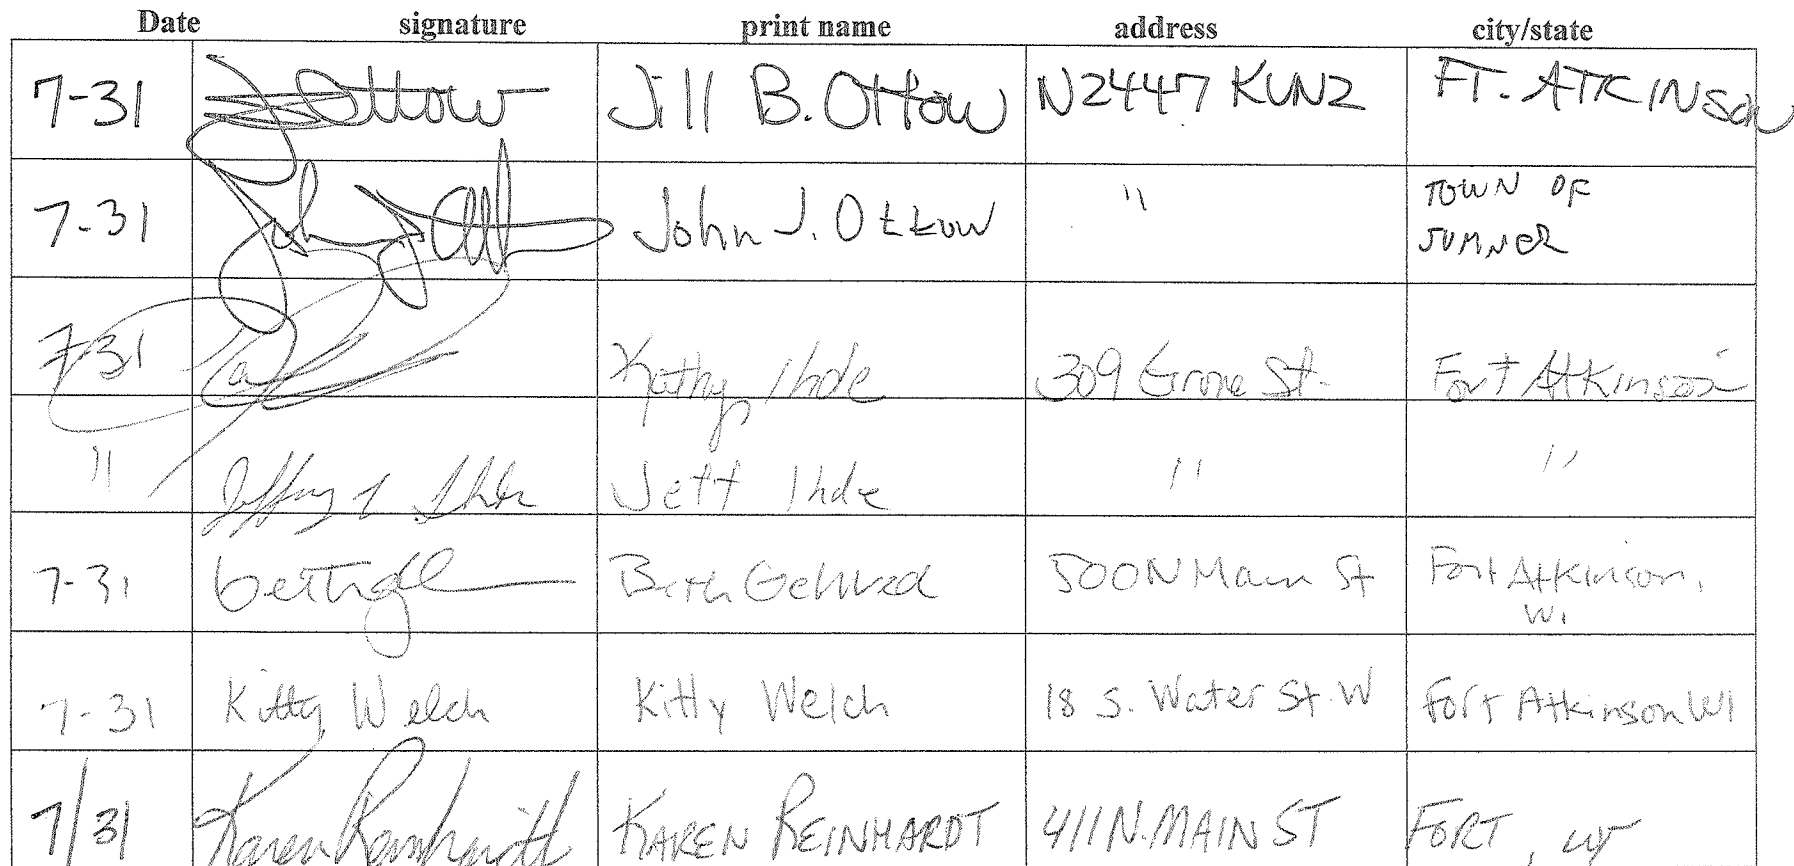 Date signature print name address city/state
7-31 JOttow Jill B. Ottow N2447 KUNZ FT. ATKINSON
7-31 John J. Ott John J. Ottow " TOWN OF
SUMNER
7-31 Kathy Ihde 309 Grove St. Fort Atkinson
" Jeffrey Ihde Jeff Ihde " "
7-31 Beth Beth Gehred 500 N Main St Fort Atkinson,
WI
7-31 Kitty Welch Kitty Welch 18 S. Water St. W Fort Atkinson WI
7/31 Karen Reinhardt KAREN REINHARDT 411 N. MAIN ST FORT, WI